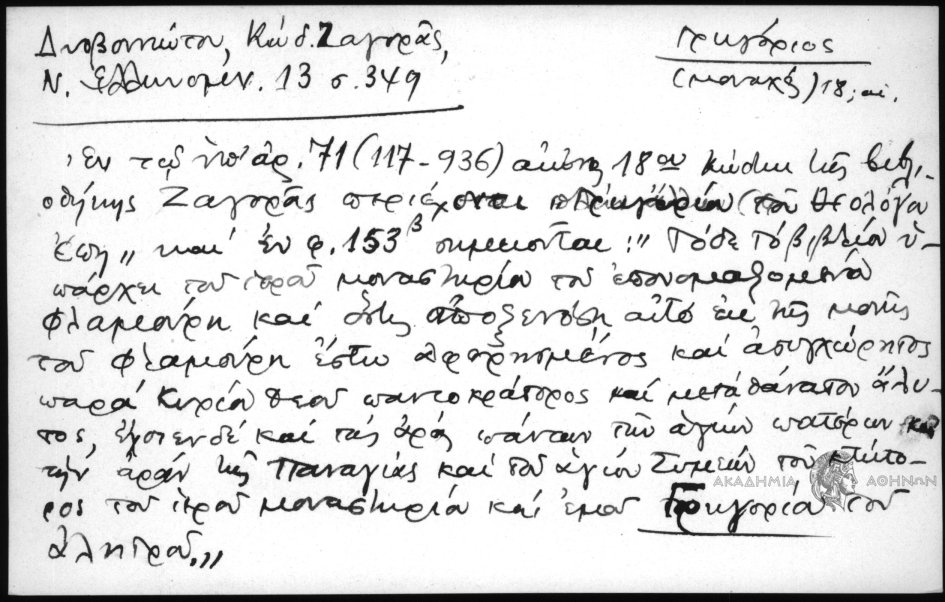 Δυοβουνιώτου, Κώδ. Ζαγορᾶς,
Ν. Ἑλληνομν. 13 σ. 349
Γρηγόριος
(μοναχός) 18; αἰ.
Ἐν τῷ ὑπ' ἀρ. 71 (117-936) 18ου κώδικι τῆς βιβλι-
οθήκης Ζαγορᾶς περιέχονται Γρηγορίου τοῦ Θεολόγου
ἔπη„ καί ἐν φ. 153β σημειοῦται: „Τόδε τό βιβλίον ὑ-
πάρχει τοῦ ἱεροῦ μοναστηρίου τοῦ ἐπονομαζομένου
Φλαμούρη καί ὅστις ἀποξενώσῃ αὐτό ἐκ τῆς μονῆς
τοῦ Φλαμούρη ἔστω ἀφορισμένος καί ἀσυγχώρητος
παρά Κυρίου Θεοῦ παντοκράτορος καί μετά θάνατον ἄλυ-
τος, καί τάς ἀράς πάντων τῶν ἁγίων πατέρων καί
τήν ἀράν τῆς Παναγίας καί τοῦ ἁγίου Συμεών τοῦ κτήτο-
ρος τοῦ ἱεροῦ μοναστηρίου καί ἐμοῦ Γρηγορίου τοῦ
ἀλητροῦ„
ΑΚΑΔΗΜΙΑ ΑΘΗΝΩΝ